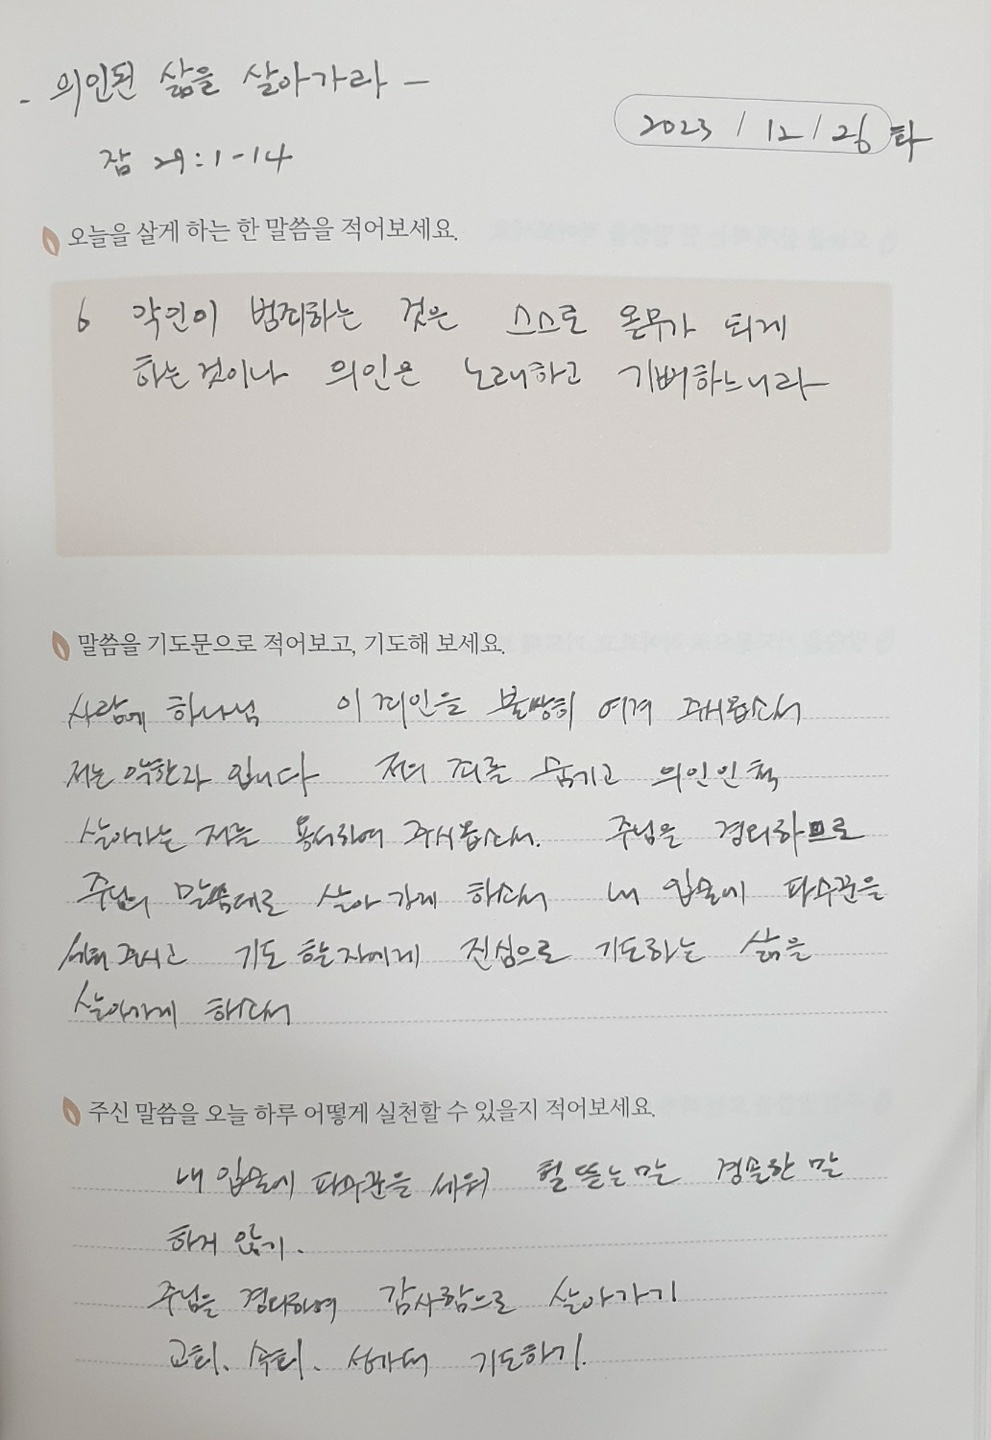 - 의인된 삶을 살아가라 -
2023 / 12 / 26 화
잠 29:1-14
오늘을 살게 하는 한 말씀을 적어보세요.
6 각인이 범죄하는 것은 스스로 온무가 되게
하는것이나 의인은 노래하고 기뻐하느니라
말씀을 기도문으로 적어보고, 기도해 보세요.
사랑에 하나님 이 죄인을 불쌍히 여겨 주시옵소서
저는 악한자 입니다 저의 죄를 숨기고 의인인 척
살아가는 저를 용서하여 주시옵소서. 주님을 경외하므로
주님의 말씀대로 살아가게 하소서 내 입술에 파수꾼을
세워 주시고 기도 할 자에게 진심으로 기도하는 삶을
살아가게 하소서
주신 말씀을 오늘 하루 어떻게 실천할 수 있을지 적어보세요.
내 입술에 파수꾼을 세워 헐뜯는 말 경솔한 말
하지 않기.
주님을 경외하여 감사함으로 살아가기
교회. 기도하기.